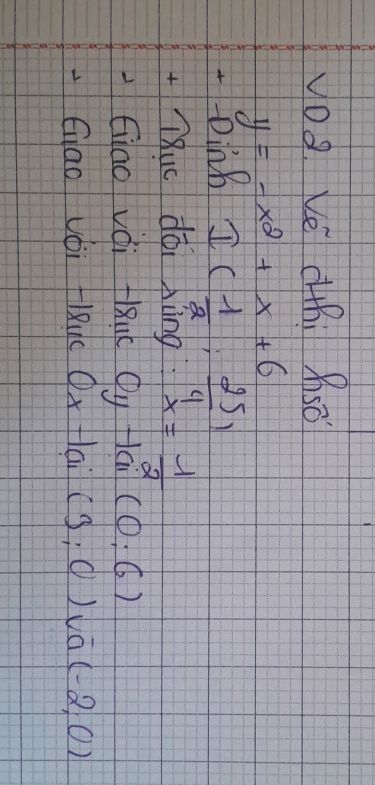 VD2. Vẽ đthị hsố
y = -x2 + x + 6
+ Đỉnh I (1/2; 25/4)
+ Trục đối xứng: x = 1/2
+ Giao với trục Oy tại (0;6)
+ Giao với trục Ox tại (3;0) và (-2;0)